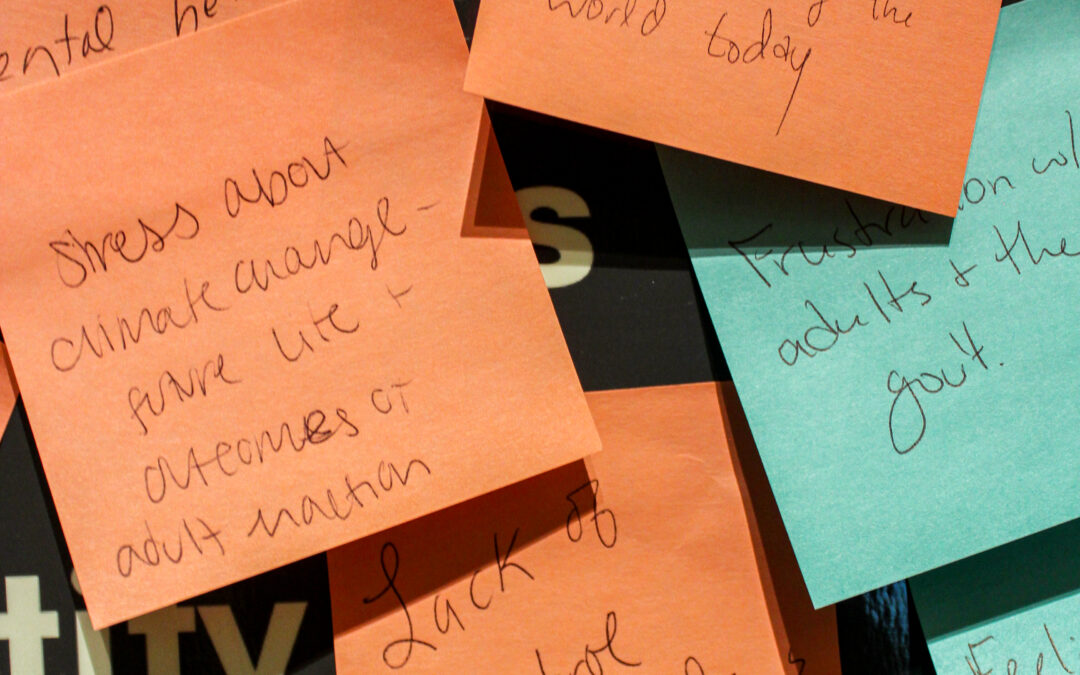 ental he
world
the
today
Stress about
climate change -
future life +
outcomes of
adult inaction
s
Frustration w/
adults + the
gov't.
Lack of
tity
Feeli